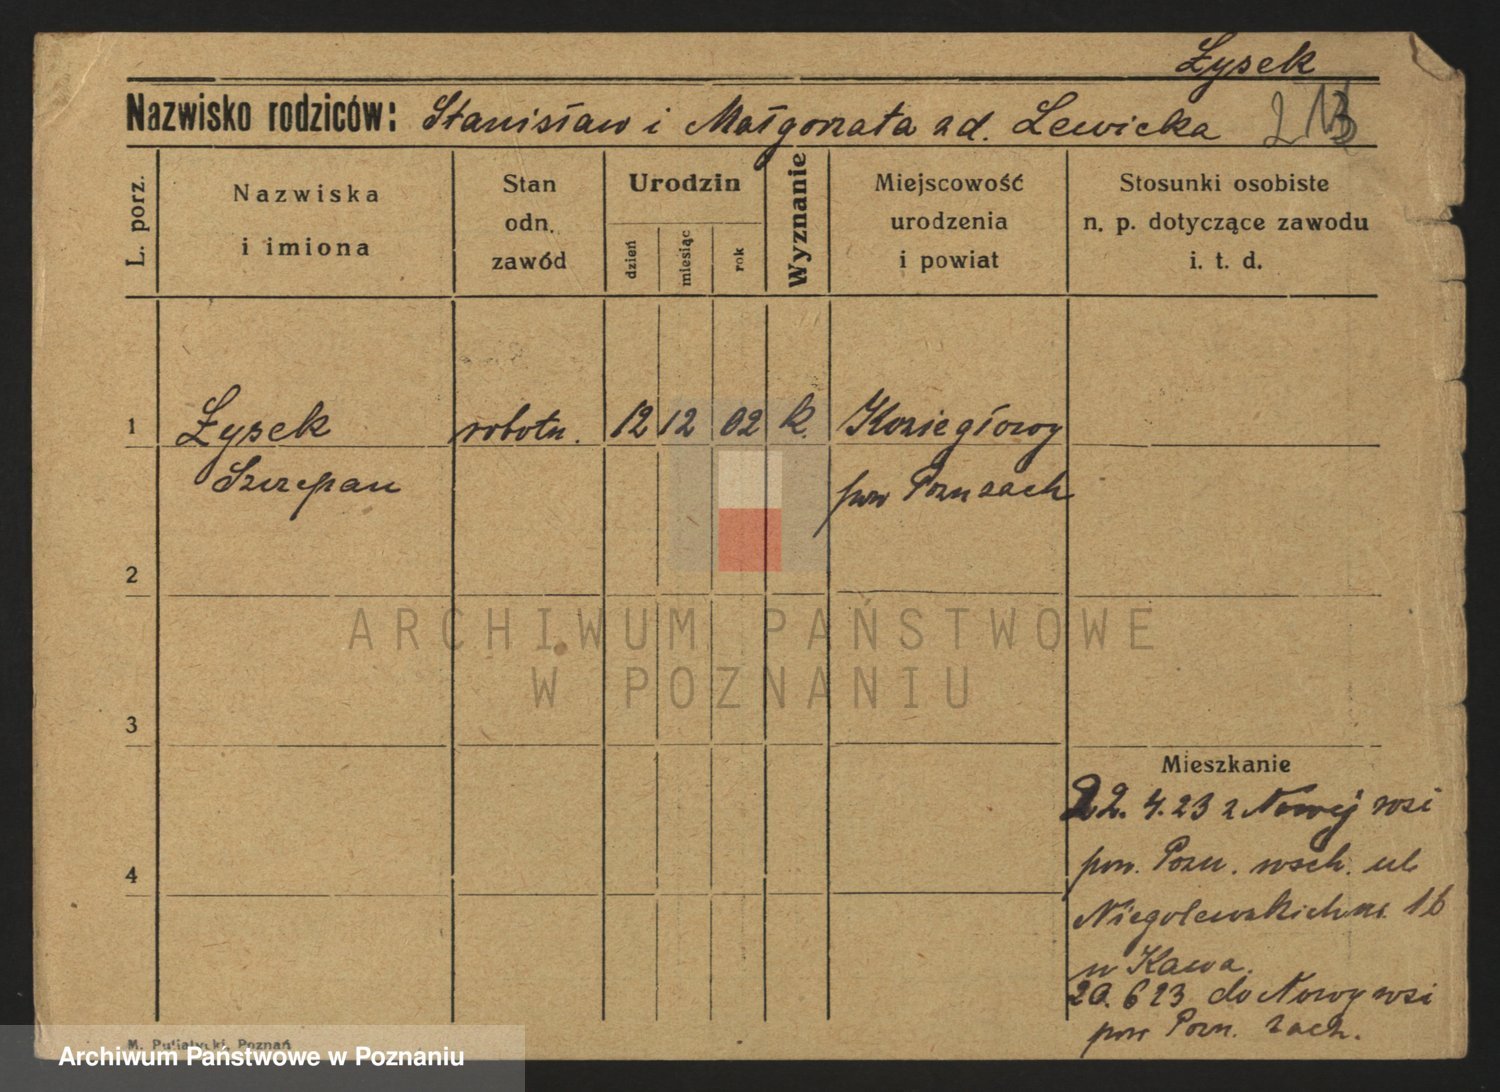 Łysek
Nazwisko rodziców: Stanisław i Małgorzata zd. Lewicka 213
L. porz.
Nazwiska
i imiona
Stan
odn.
zawód
Urodzin
dzień
miesiąc
rok
Wyznanie
Miejscowość
urodzenia
i powiat
Stosunki osobiste
n. p. dotyczące zawodu
i. t. d.
1 Łysek robotn. 12 12 02 k. Koziegłowy
Szczepan pow Pozn zach
2
3
4
Mieszkanie
22. 4. 23 z Nowej wsi
pow. Pozn. wsch. ul
Niegolewskich nr. 16
w Kawa.
20. 6 23 do Nowy wsi
pow Pozn. zach.
M. Putiatycki, Poznań
ARCHIWUM PAŃSTWOWE
W POZNANIU
Archiwum Państwowe w Poznaniu